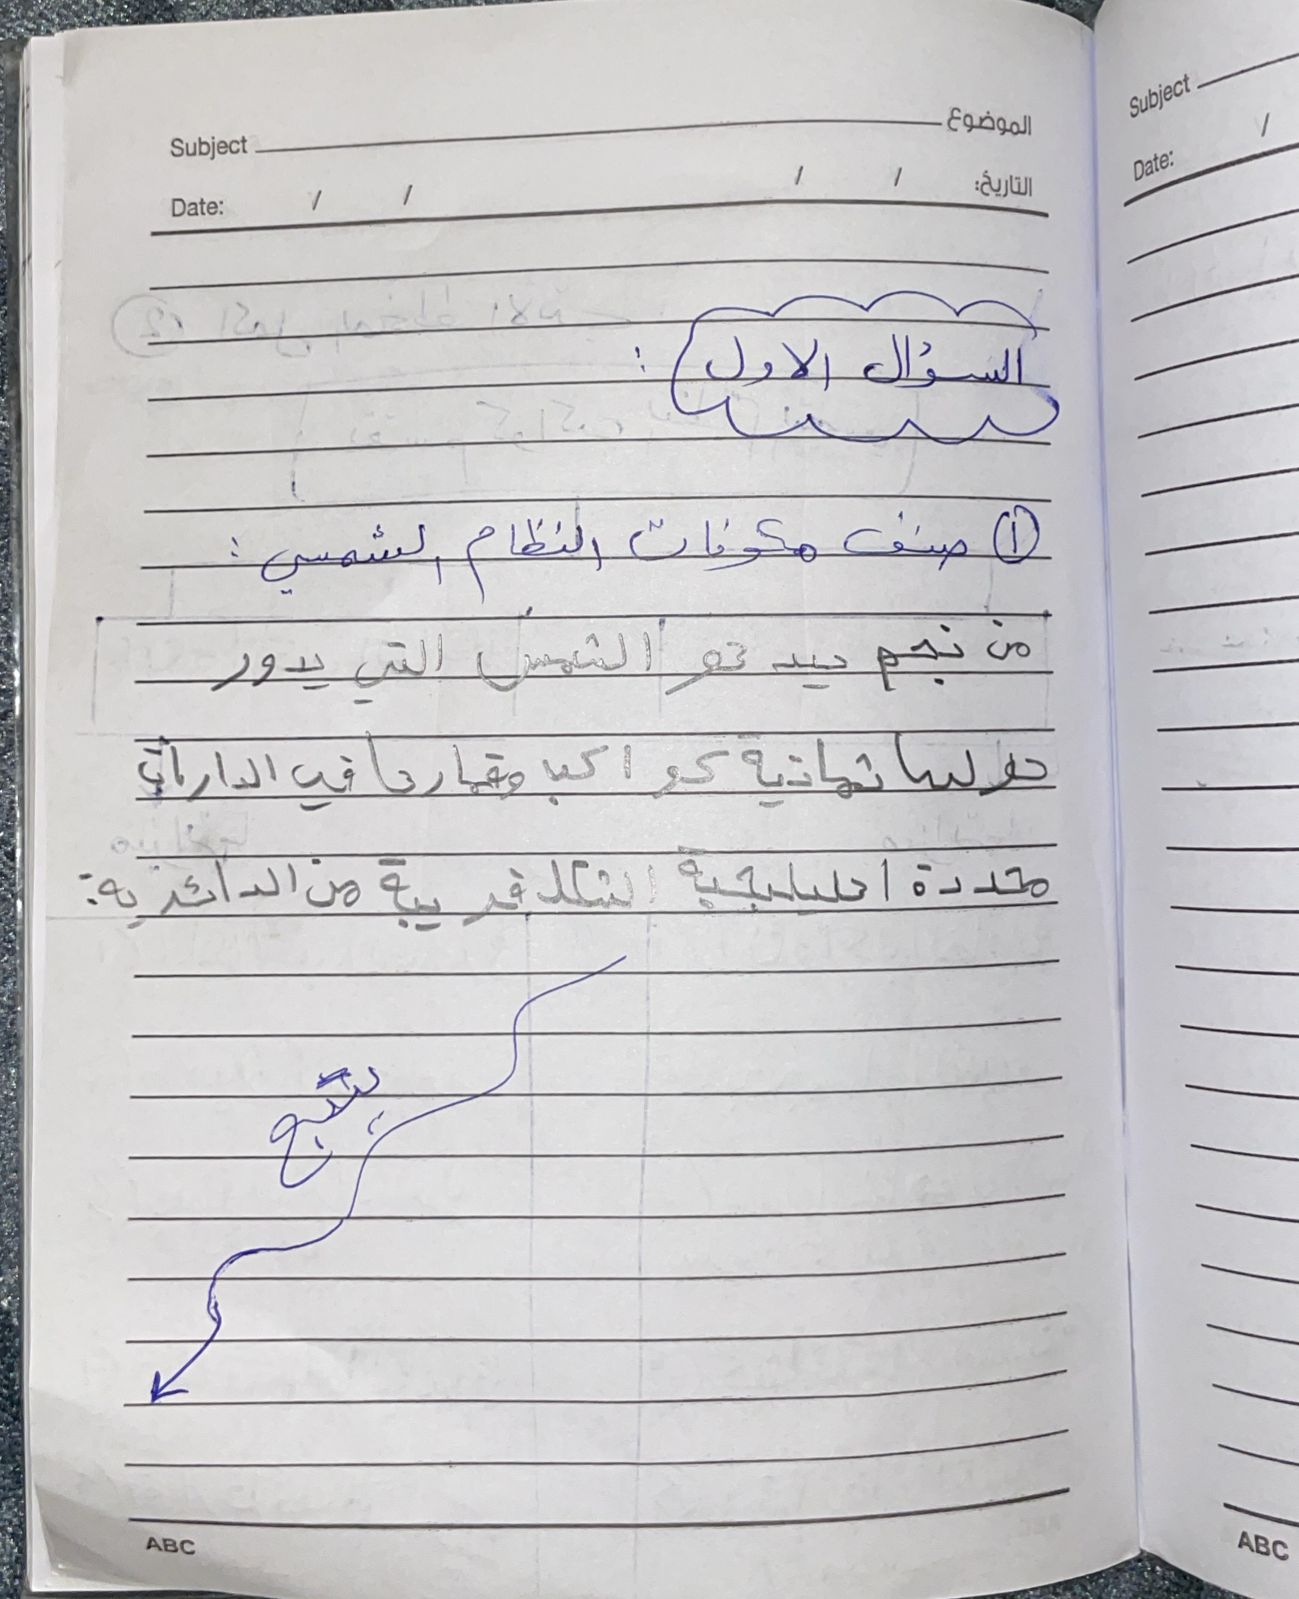 Subject الموضوع
Date: / / / / التاريخ:
السؤال الاول :
① صنف مكونات النظام الشمسي :
من نجم حيد نحو الشمس التي يدور
حولها ثمانية كوا كبا وقمارها في الدارات
محددة اهليليجية الشكل قر يبة من الدائرية.
يتبع
ABC
Subject
Date: /
ABC